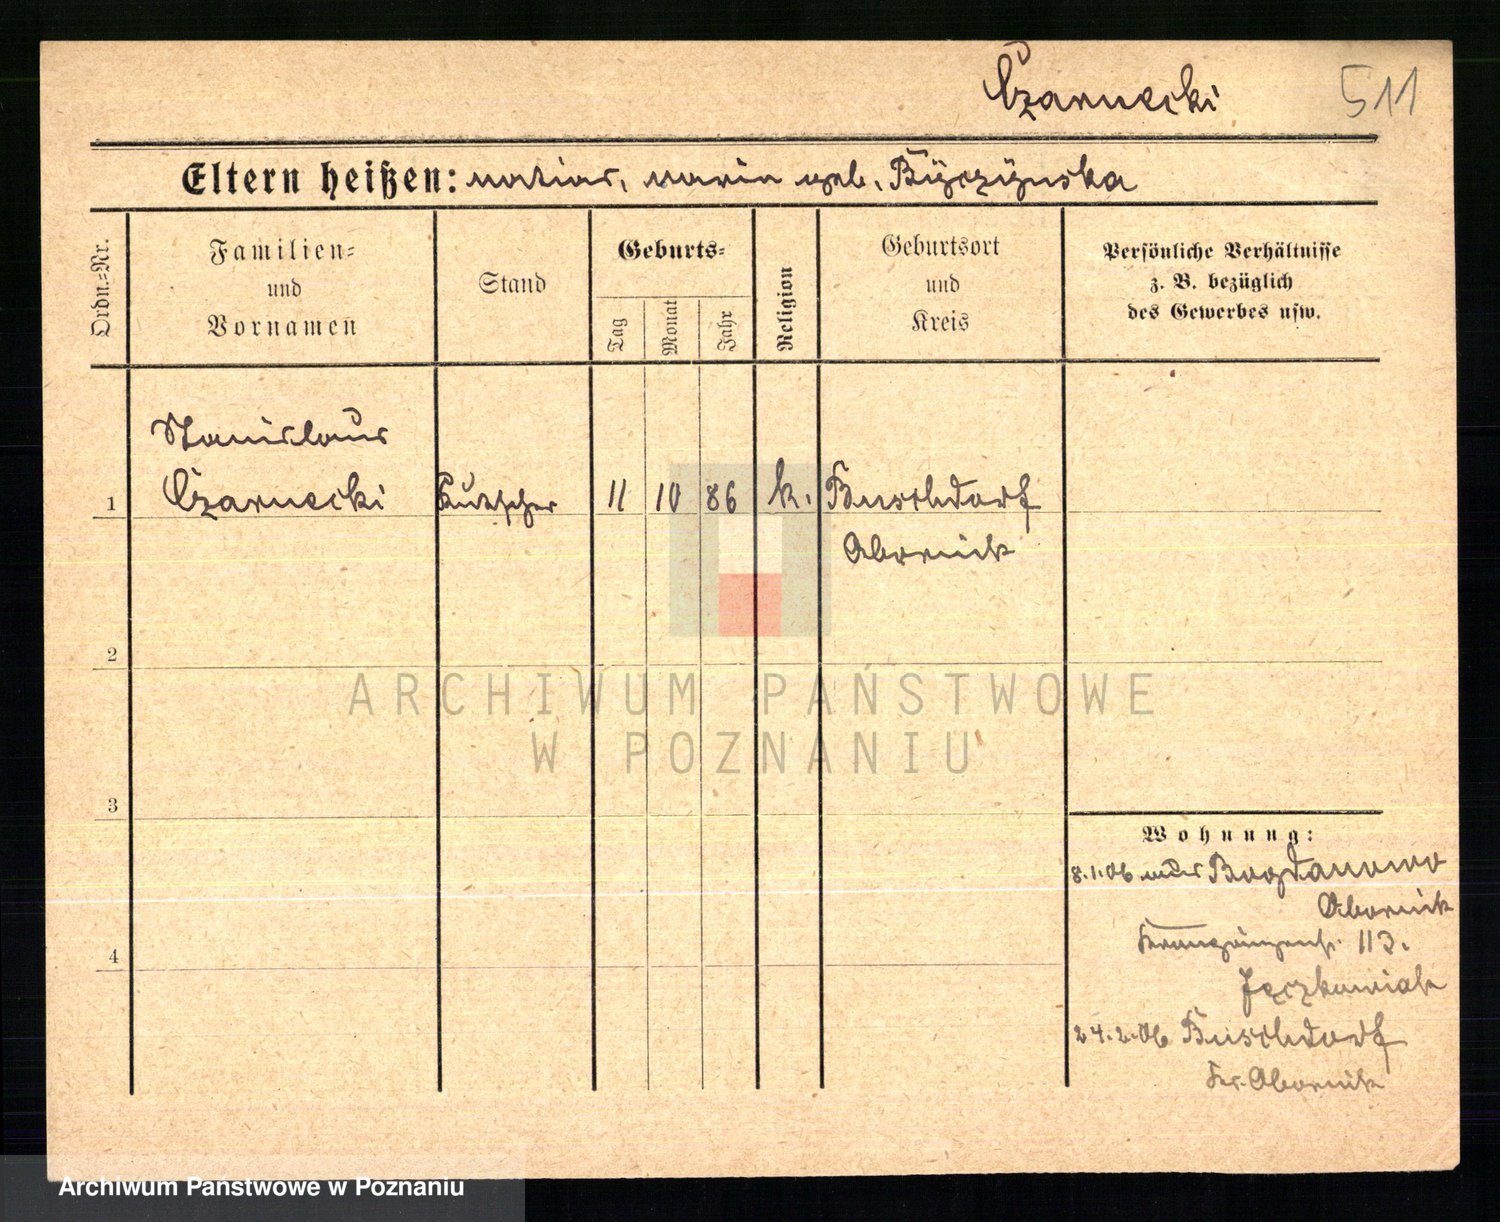 Czarnecki 511
Eltern heißen: Matias, Maria geb. Byczynska
Ordn.-Nr.
Familien-
und
Vornamen
Stand
Geburts-
Tag
Monat
Jahr
Religion
Geburtsort
und
Kreis
Persönliche Verhältnisse
z. B. bezüglich
des Gewerbes usw.
Stanislaus
1 Czarnecki Kutscher 11 10 86 k. Buschdorf
Obornik
2
ARCHIWUM PAŃSTWOWE
W POZNANIU
3
Wohnung:
8.1.06 aus Bogdanowo
Obornik
113.
24.2.06 Buschdorf
Kr. Obornik
4
Archiwum Państwowe w Poznaniu